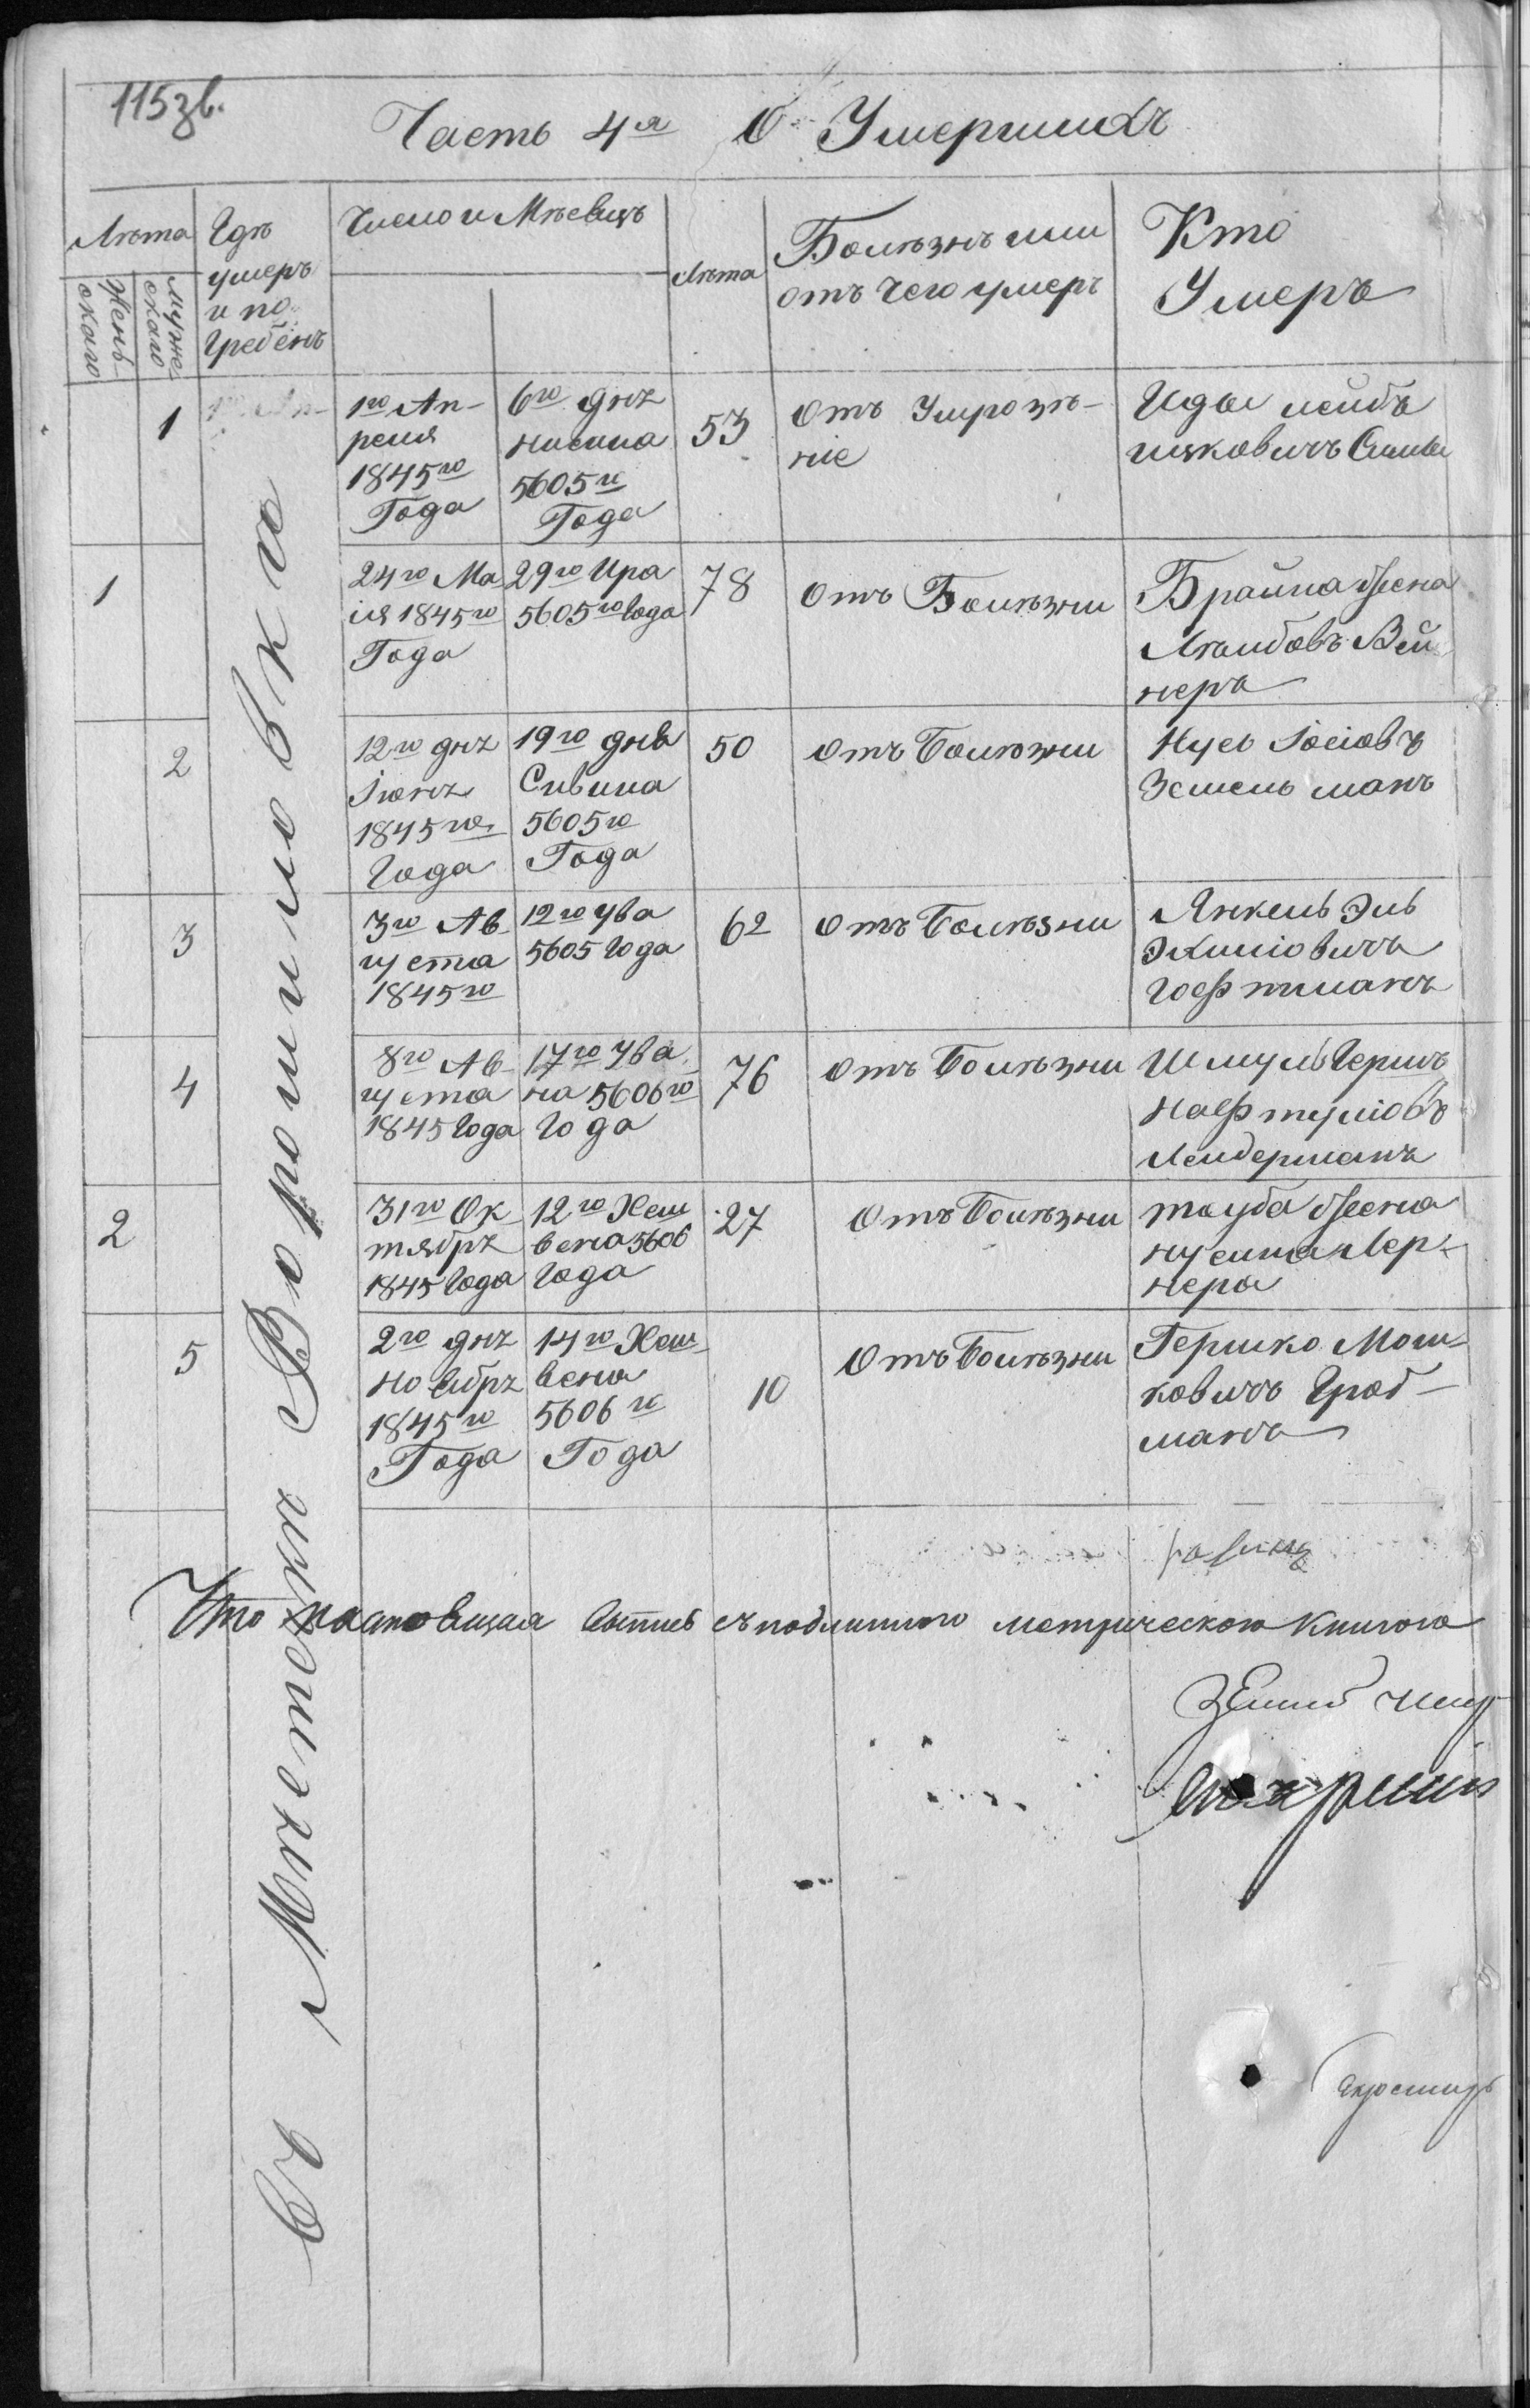 115зв.
Часть 4я О Умершихъ
Лѣта
Жень-
скаго
мужес
скаго
Гдѣ
умеръ
и по
гребенъ
Число и Мѣсецъ
Лѣта
Болѣзнь или
отъ чего умеръ
Кто
Умеръ
Въ Мѣстечкѣ Ворошиловки
1
1го Ап-
1го Ап-
реля
1845го
Года
6го дня
нисана
5605го
Года
53
отъ
ніе
лейб
1
24го Ма
ія 1845го
Года
29го Ира
5605го Года
78
отъ Болѣзни
Брайна жена
Лѣйбовъ Вей
нера
2
12го дня
Іюня
1845го
Года
19го дня
Сивана
5605го
Года
50
отъ Болѣзни
Нусь Іосіовъ
Земель манъ
3
3го Ав
густа
1845го
12го Ува
5605 Года
62
отъ Болѣзни
Янкель Эль
Гофтманъ
4
8го Ав-
густа
1845 Года
17го Ува
на 5606го
Года
76
отъ Болѣзни
Шмуль Гершъ
Нафтуліовъ
Лендерманъ
2
31го Ок
тябрѣ
1845 Года
12го Хеш
вена 5606
Года
27
отъ Болѣзни
тауба жена
Лер-
нера
5
2го дня
Ноябрѣ
1845го
Года
14го Хеш-
вена
5606го
Года
10
отъ Болѣзни
Гершко Мош-
ковичъ Гроб-
манъ
Что съ подлинною метрическою Книгою